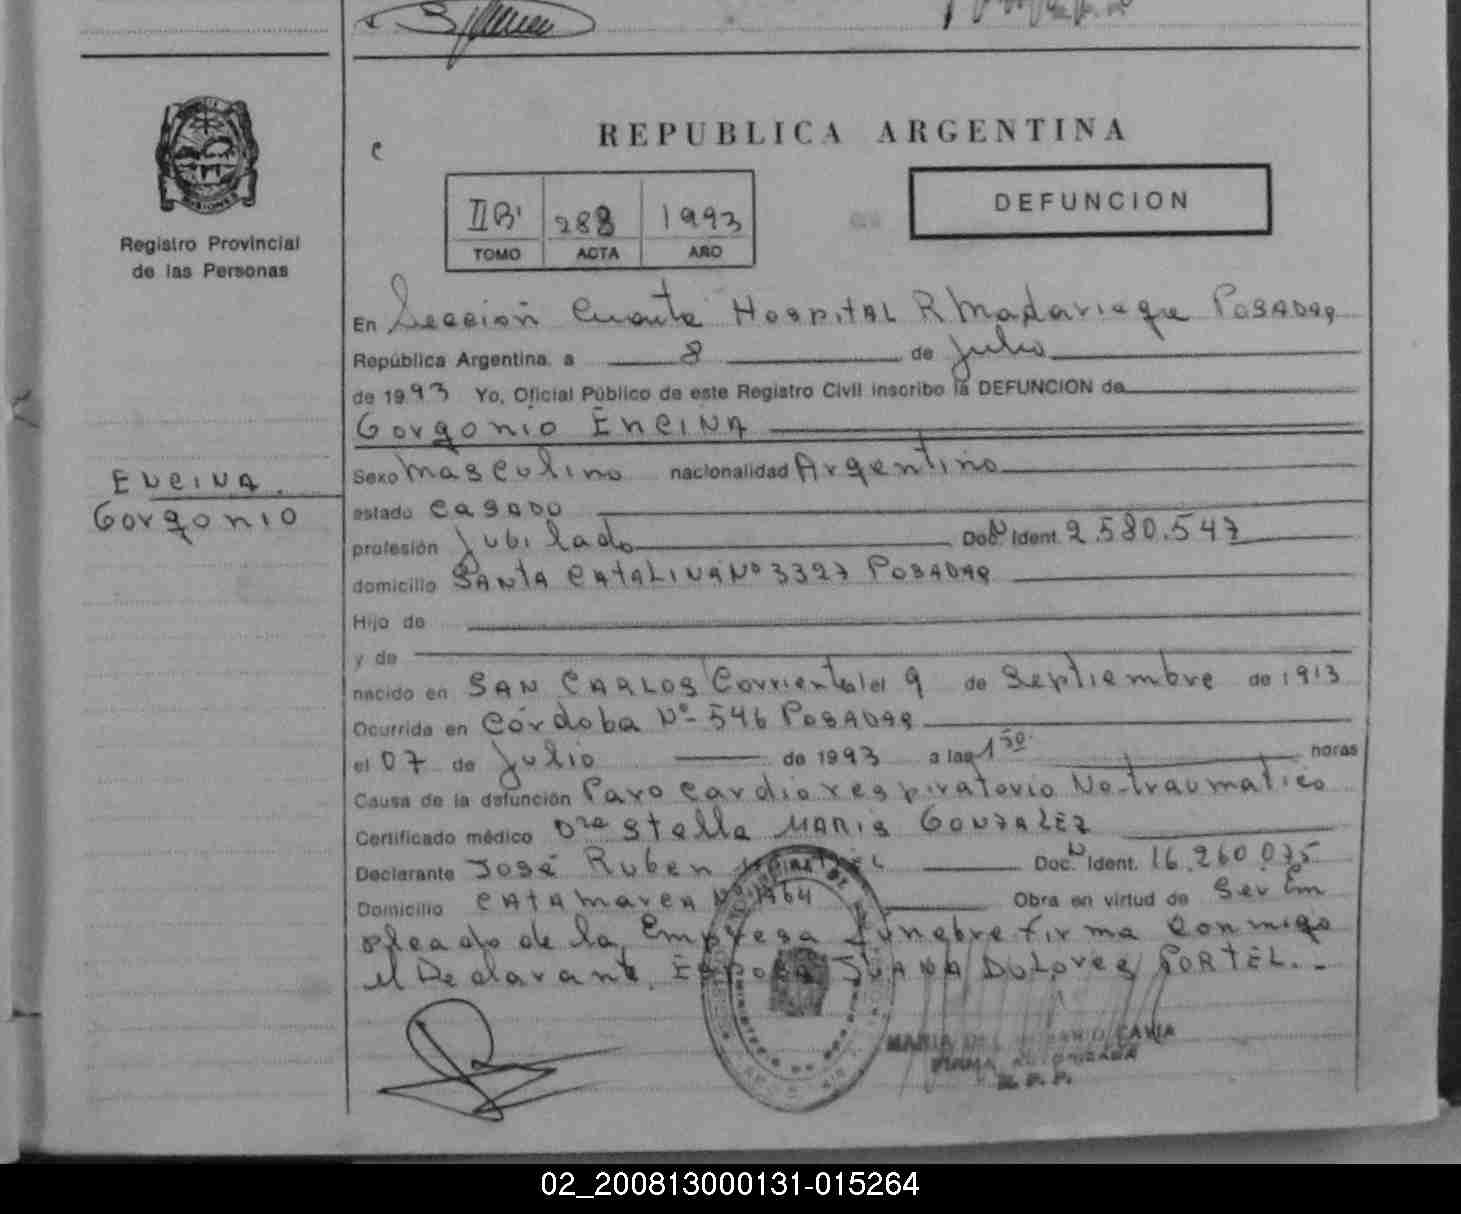 REPUBLICA ARGENTINA
MISIONES
Registro Provincial
de las Personas
IIB' 288 1993
TOMO ACTA AÑO
DEFUNCION
En Sección Cuarta Hospital R Madariaga POSADAS
República Argentina, a 8 de Julio
de 1993 Yo, Oficial Público de este Registro Civil inscribo la DEFUNCION de
Gorgonio ENCINA
ENCINA
Gorgonio
Sexo Masculino nacionalidad Argentino
estado CASADO
profesión Jubilado Doc. N Ident. 2.580.547
domicilio SANTA CATALINA Nº 3327 POSADAS
Hijo de
y de
nacido en SAN CARLOS Corrientes el 9 de Septiembre de 1913
Ocurrida en Córdoba Nº 546 POSADAS
el 07 de Julio de 1993 a las 1 50 horas
Causa de la defunción Paro cardiorespiratorio No-traumatico
Certificado médico Dra Stella MARIS GONZALEZ
Declarante José Ruben Doc. N Ident. 16.260.035
Domicilio CATAMARCA Nº 1964 Obra en virtud de Ser Em
pleado de la Empresa Funebre firma conmigo
el Declarante. Esposa JUANA DOLORES PORTEL.-
MARIA DEL CAVIA
FIRMA AUTORIZADA
R. P. P.
02_200813000131-015264